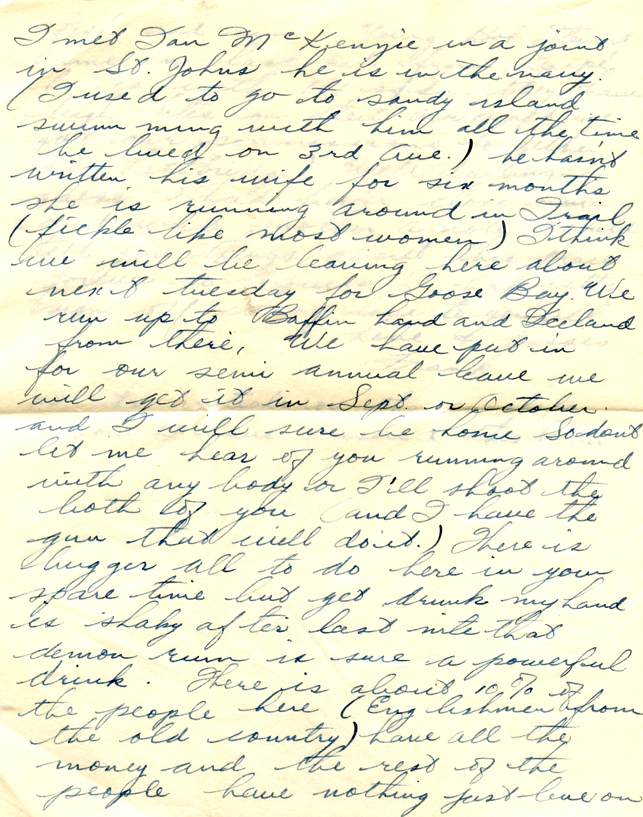 I met Dan McKenzie in a joint
in St. Johns he is in the navy.
(I used to go to sandy island
swimming with him all the time
he lived on 3rd Ave.) he hasn't
written his wife for six months
she is running around in Trail
(fickle like most women) I think
we will be leaving here about
next tuesday for Goose Bay. We
run up to Baffin Land and Iceland
from there, We have put in
for our semi annual leave we
will get it in Sept. or October.
and I will sure be home So dont
let me hear of you running around
with any body or I'll shoot the
both of you (and I have the
gun that will do it.) There is
bugger all to do here in your
spare time but get drunk my hand
is shaky after last nite that
demon rum is sure a powerful
drink. There is about 10% of
the people here (Englishmen from
the old country) have all the
money and the rest of the
people have nothing just live on